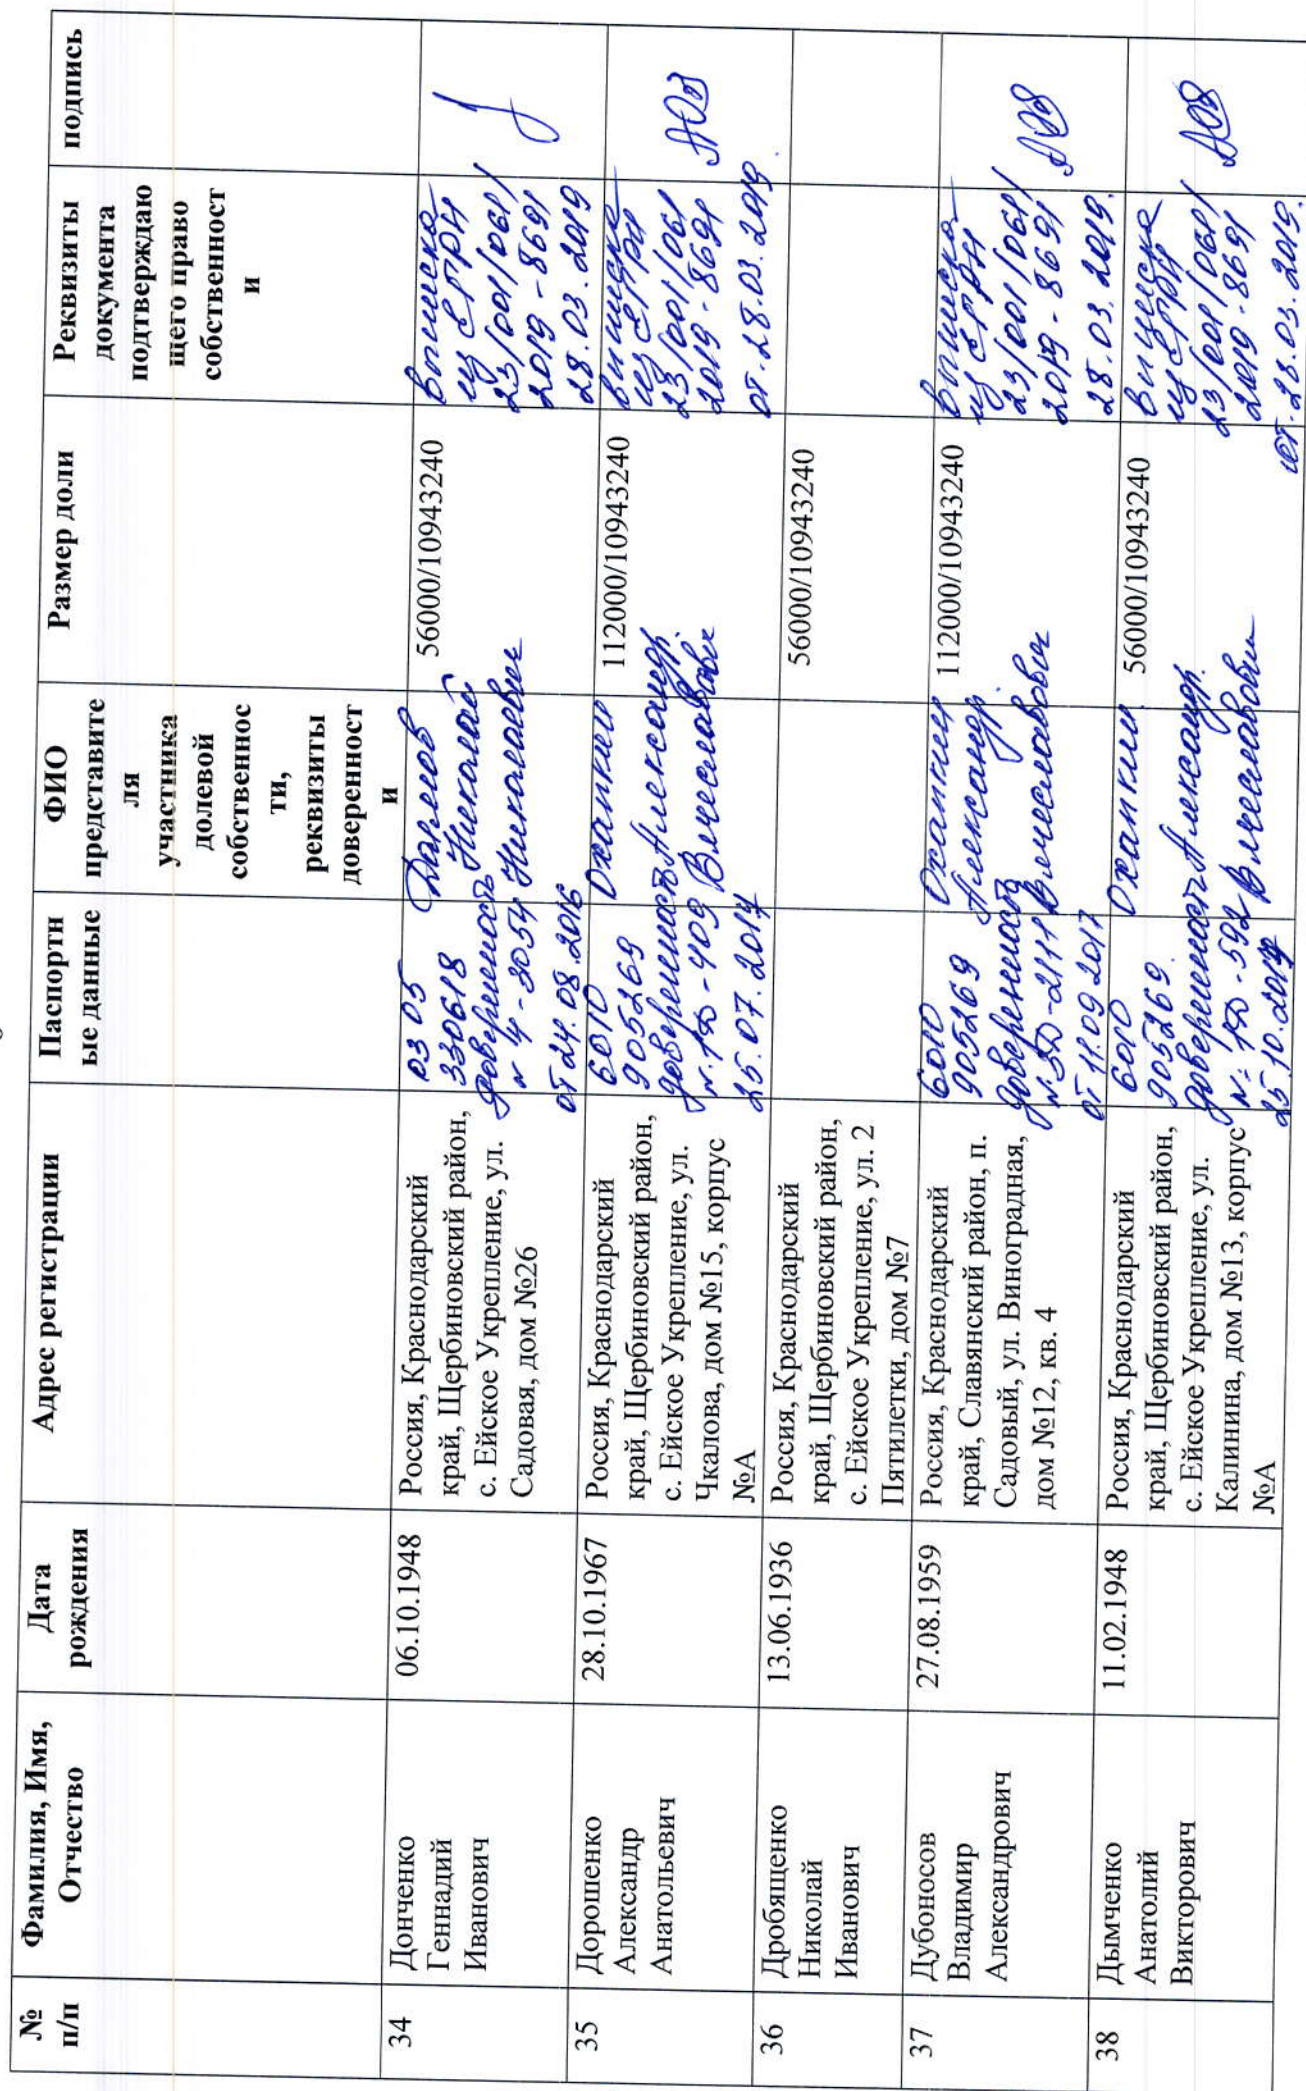 №
п/п
Фамилия, Имя,
Отчество
Дата
рождения
Адрес регистрации
Паспортн
ые данные
ФИО
представите
ля
участника
долевой
собственнос
ти,
реквизиты
доверенност
и
Размер доли
Реквизиты
документа
подтверждаю
щего право
собственност
и
подпись
34
Донченко
Геннадий
Иванович
06.10.1948
Россия, Краснодарский
край, Щербиновский район,
с. Ейское Укрепление, ул.
Садовая, дом №26
03 05
330618
доверенность
№ 4-3054
от 24.08.2016
Николай
Николаевич
56000/10943240
выписка
из ЕГРН
23/001/061/
2019-8691
28.03.2019
35
Дорошенко
Александр
Анатольевич
28.10.1967
Россия, Краснодарский
край, Щербиновский район,
с. Ейское Укрепление, ул.
Чкалова, дом №15, корпус
№А
6010
905269
доверенность
№ 1Д-409
25.07.2017
Охапкин
Александр
Вячеславович
112000/10943240
выписка
из ЕГРН
23/001/061/
2019-8691
от 28.03.2019.
36
Дробященко
Николай
Иванович
13.06.1936
Россия, Краснодарский
край, Щербиновский район,
с. Ейское Укрепление, ул. 2
Пятилетки, дом №7
56000/10943240
37
Дубоносов
Владимир
Александрович
27.08.1959
Россия, Краснодарский
край, Славянский район, п.
Садовый, ул. Виноградная,
дом №12, кв. 4
6010
905269
доверенность
№ 3Д-2111
от 11.09.2017
Охапкин
Александр
Вячеславович
112000/10943240
выписка
из ЕГРН
23/001/061/
2019-8691
28.03.2019.
38
Дымченко
Анатолий
Викторович
11.02.1948
Россия, Краснодарский
край, Щербиновский район,
с. Ейское Укрепление, ул.
Калинина, дом №13, корпус
№А
6010
905269.
доверенность
№ 1Д-592
25.10.2017
Охапкин
Александр
Вячеславович
56000/10943240
выписка
из ЕГРН
23/001/061/
2019-8691
от 28.03.2019.